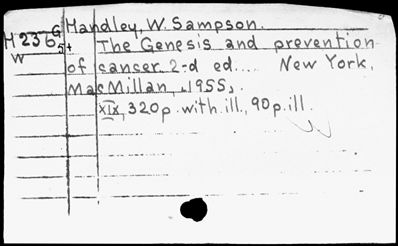 G Handley, W. Sampson.
H 236 5t The Genesis and prevention
W of cancer. 2-d ed.... New York,
MacMillan, 1955,.
XIX, 320 p. with ill., 90 p. ill.